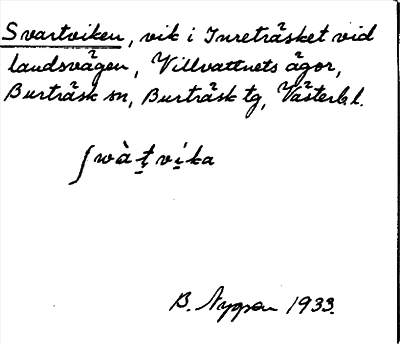 Svartviken, vik i Inreträsket vid
landsvägen, Villvattnets ägor,
Burträsk sn, Burträsk tg, Västerb. l.
ʃwàt̠ví̠ka
B. Nygren 1933.